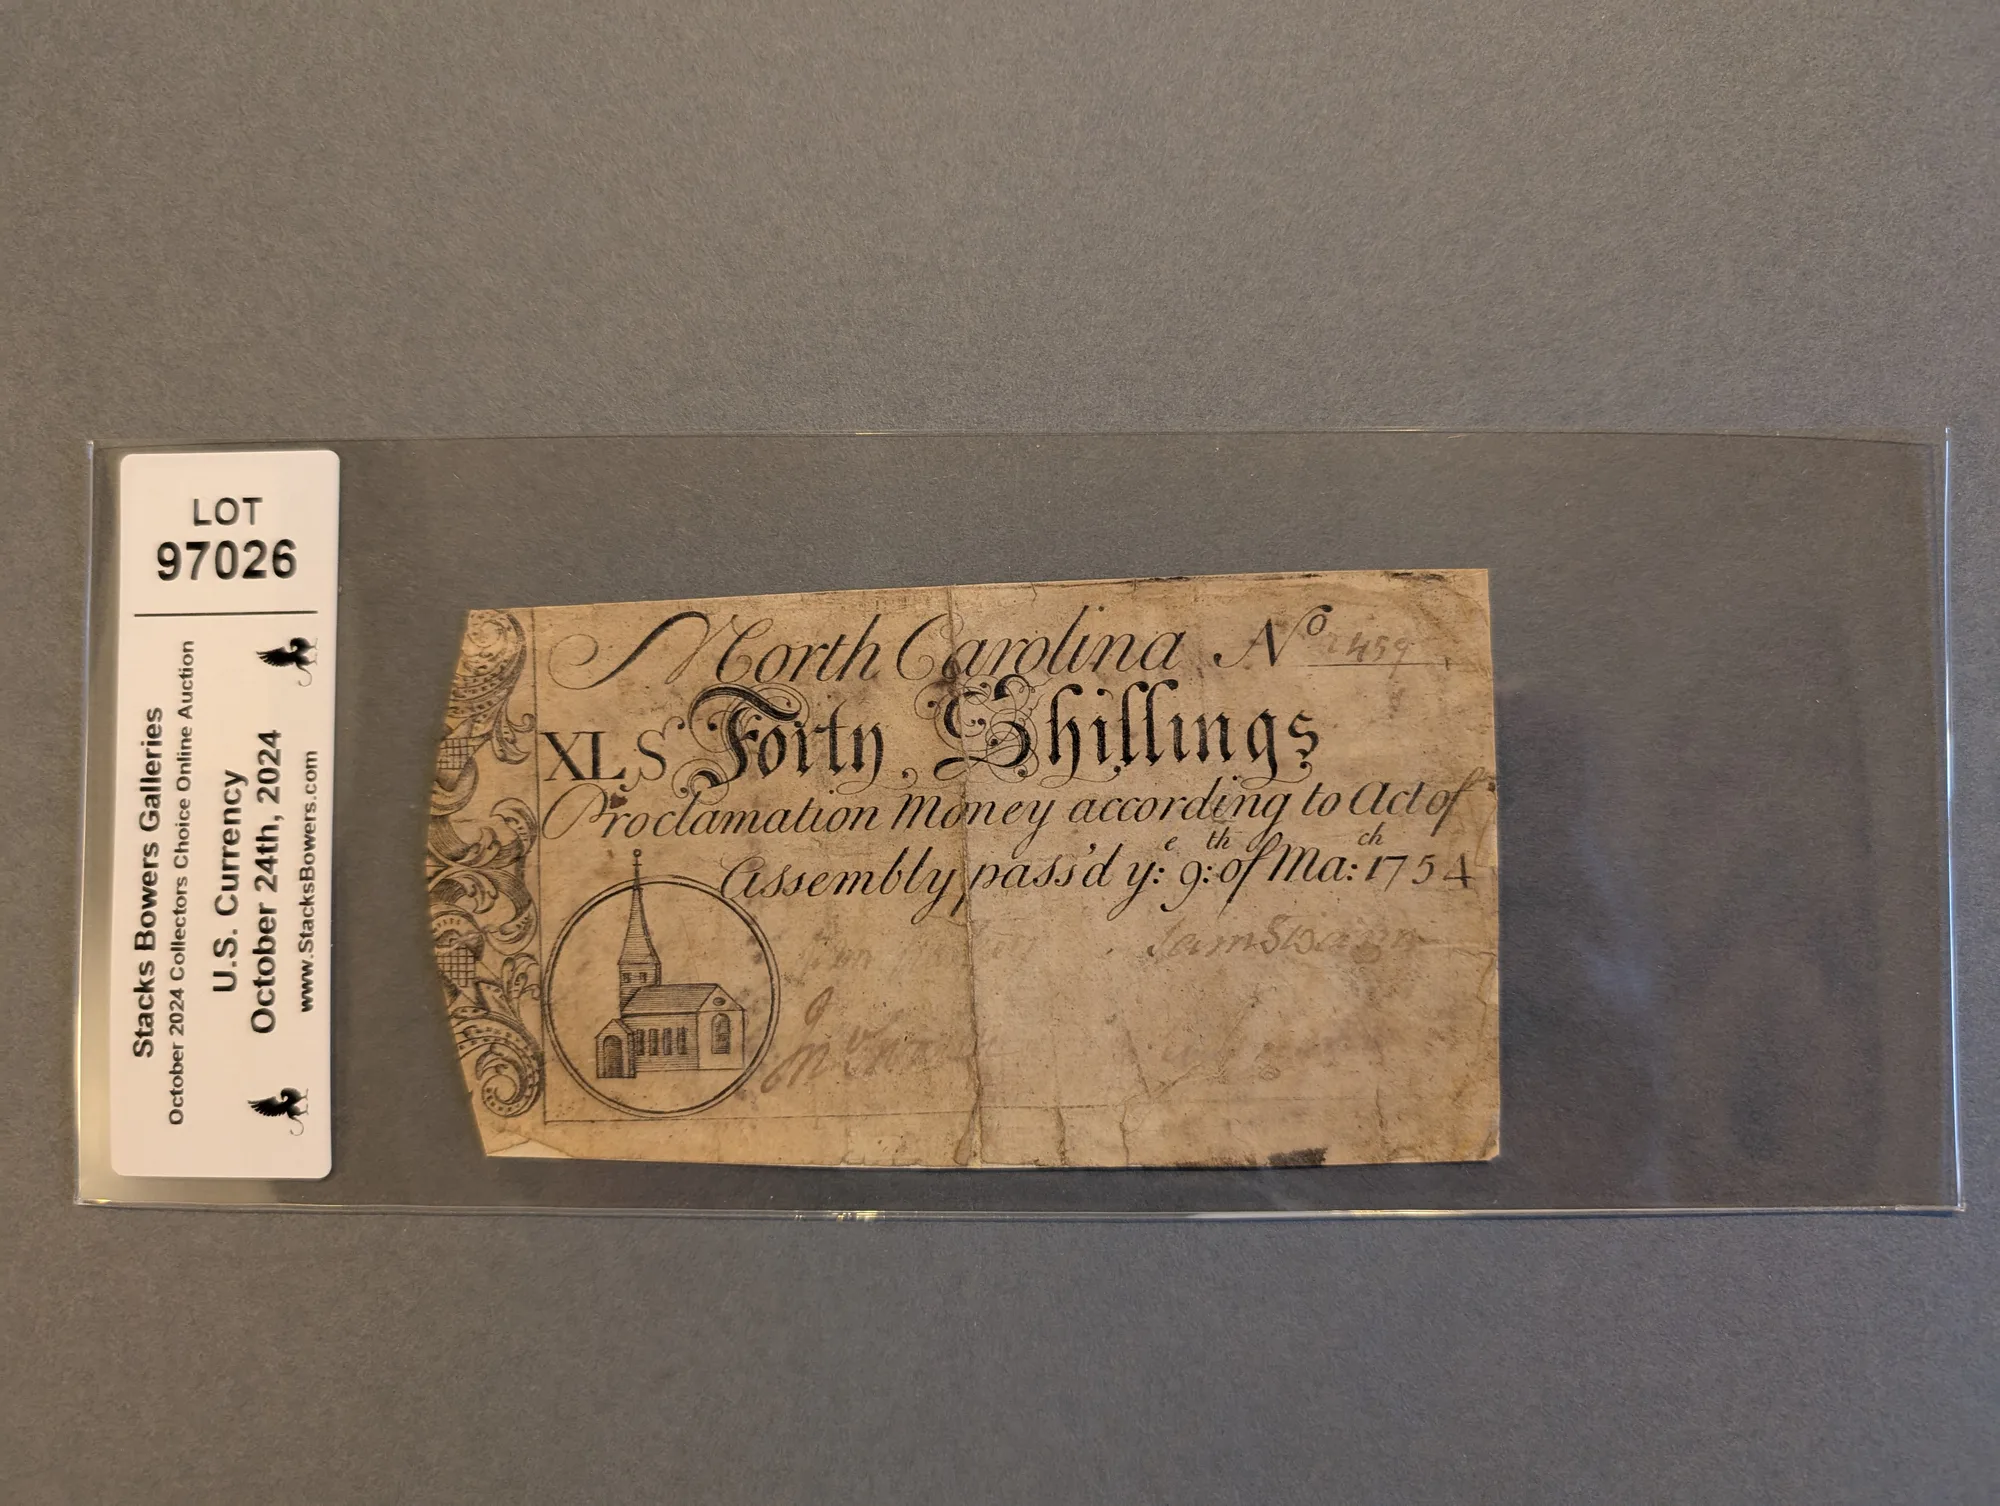 LOT
97026
Stacks Bowers Galleries
October 2024 Collectors Choice Online Auction
U.S. Currency
October 24th, 2024
www.StacksBowers.com
North Carolina No 2459
XL S Forty Shillings
Proclamation Money according to Act of
Assembly pass'd ye: 9th: of Mach: 1754
Sam Swann